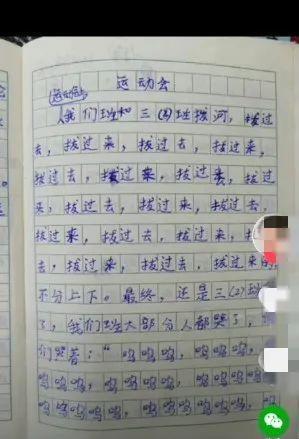 运动会
运动会
我们班和三(4)班拔河，拔过
去，拔过来，拔过去，拔过来，
拔过去，拔过来，拔过去，拔过
来，拔过去，拔过来，拔过去，
拔过来，拔过去，拔过来，拔
去，拔过来，拔过去，拔过来的
不分上下。最终，还是三(2)班
了，我们班大部分人都哭了，
们哭着：“呜呜呜，呜呜呜，
呜呜呜，呜呜呜，呜呜呜，呜呜
呜呜呜呜，呜呜呜呜，呜